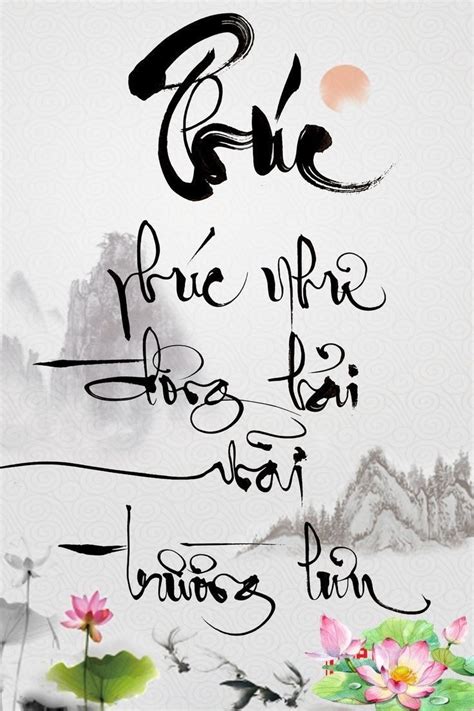 Phúc
phúc như
đông hải
mãi
trường lưu